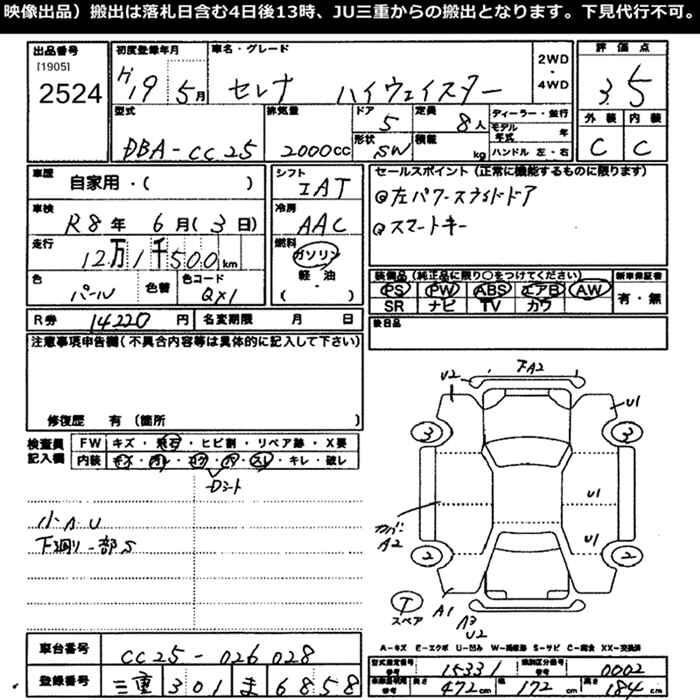 映像出品）搬出は落札日含む4日後13時、JU三重からの搬出となります。下見代行不可。
出品番号
[1905]
2524
初度登録年月
H19 5月
車名・グレード
セレナ ハイウェイスター
2WD
・
4WD
評価点
3.5
型式
DBA-CC25
排気量
2000cc
ドア
5
形状
SW
定員
8人
積載
kg
ディーラー・並行
モデル年式 年
ハンドル 左・右
外装
C
内装
C
車歴
自家用・（ ）
車検
R8年 6月（3日）
走行
12万1千500km
色
パール
色替
色コード
QX1
シフト
IAT
冷房
AAC
燃料
ガソリン
・
軽・油
（ ）
セールスポイント（正常に機能するものに限ります）
◎左パワースライドドア
◎スマートキー
装備品（純正品に限り○をつけてください）
PS PW ABS エアB AW
SR ナビ TV カワ
新車保証書
有・無
R券 14220円
名変期限 月 日
後日品
注意事項申告欄（不具合内容等は具体的に記入して下さい）
修復歴 有（箇所 ）
検査員記入欄
FW キズ・飛石・ヒビ割・リペア跡・X要
内装 キズ・汚レ・コゲ・穴・スレ・キレ・破レ
Dシート
小AU
下廻一部S
U2
下A2
U1
3
3
U1
カバーA2
U1
2
2
T
スペア
A1
A3
U2
A-キズ E-エクボ U-凹み W-補修跡 S-サビ C-腐食 XX-交換済
車台番号
CC25-026028
登録番号
三重 301 ま 6858
型式指定番号
参考
15331
類別区分番号
参考
0002
長さ 472cm
幅 172cm
高さ 184cm